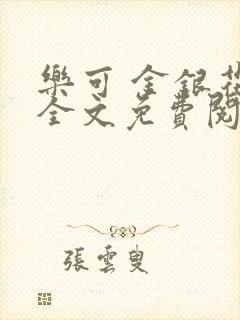 樂可 金銀花
全文免費閱
張雲叟